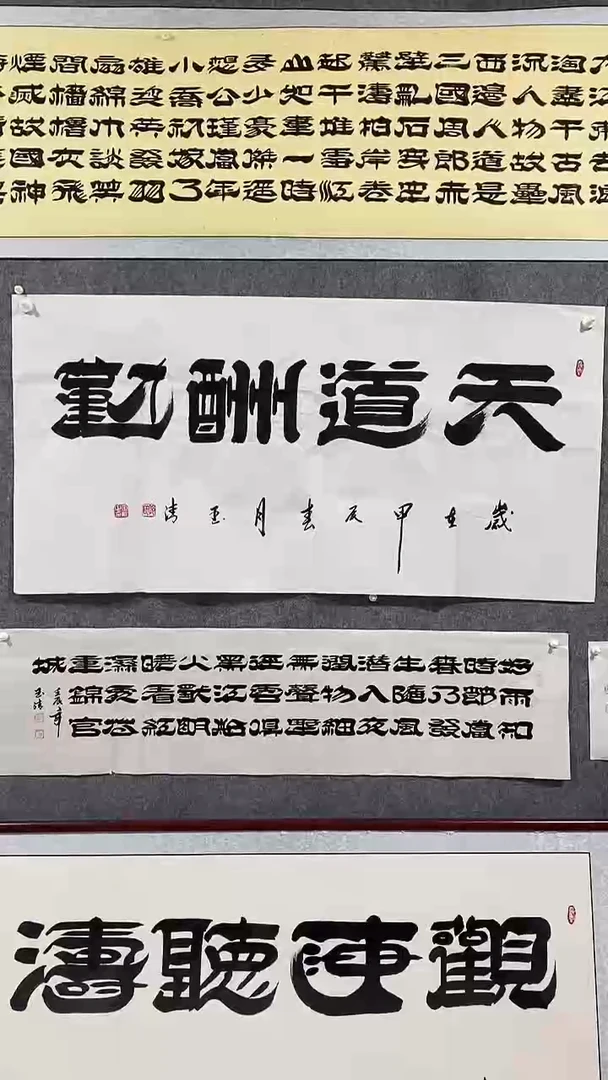 大江東去浪
淘盡千古風
流人物故壘
西邊人道是
三國周郎赤
壁亂石穿空
驚濤拍岸卷
起千堆雪江
山如畫一時
多少豪傑遙
想公瑾當年
小喬初嫁了
雄姿英發羽
扇綸巾談笑
間檣櫓灰飛
煙滅故國神
天道酬勤
歲在甲辰春月玉清
好雨知
時節當
春乃發
生隨風
潛入夜
潤物細
無聲野
徑雲俱
黑江船
火獨明
曉看紅
濕處花
重錦官
城
玉清
觀海聽濤